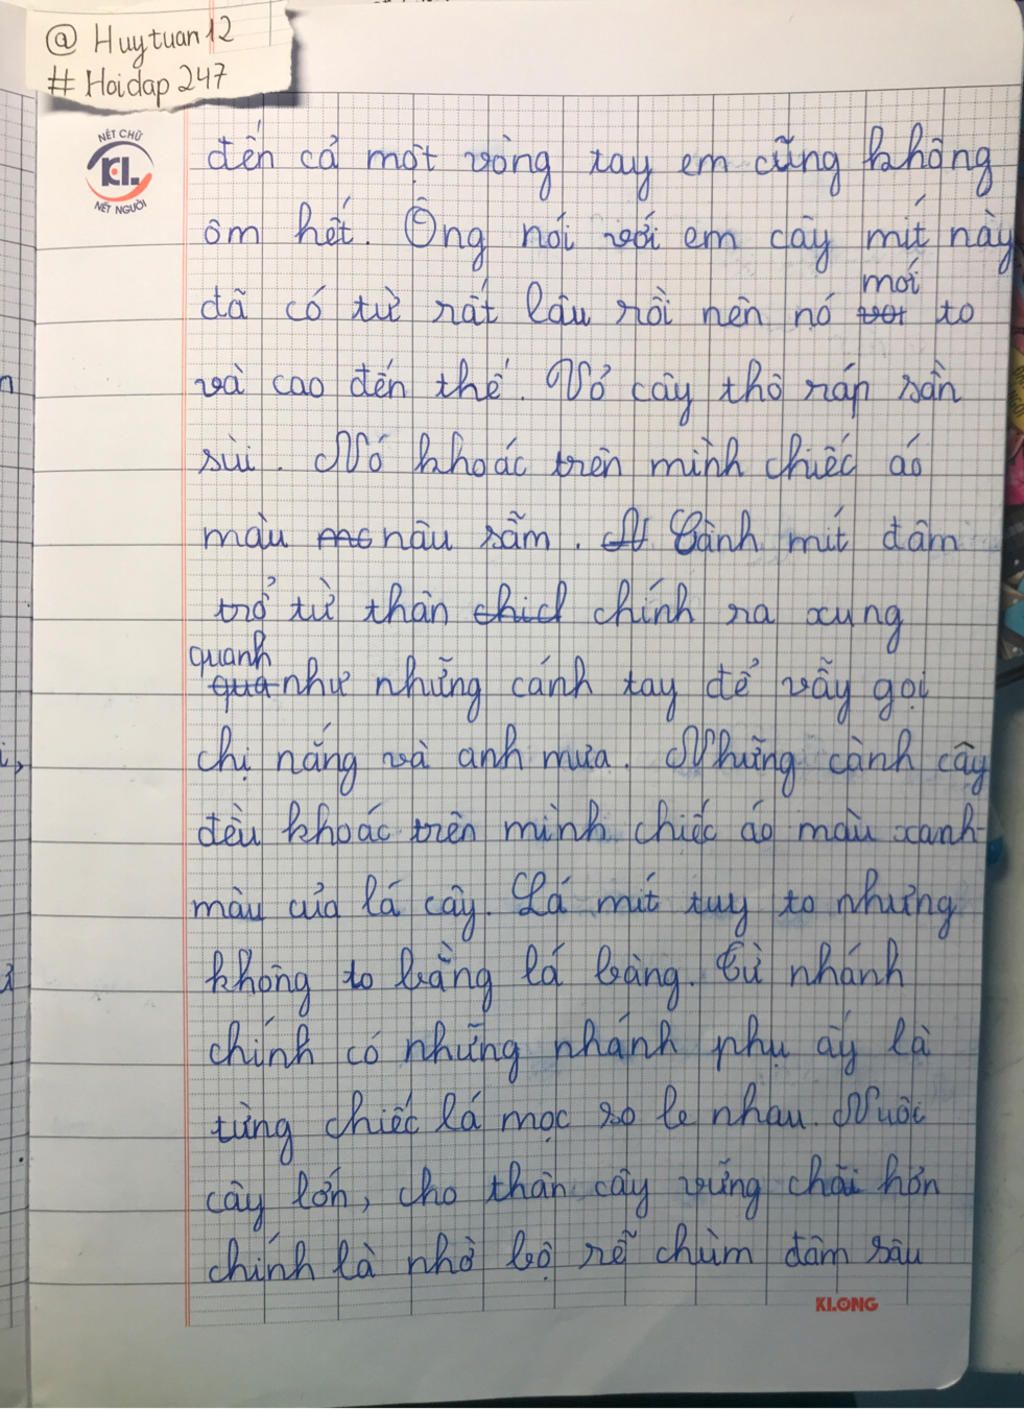 @ Huytuan12
# Hoidap 247
NÉT CHỮ
KL.
NẾT NGƯỜI
đến cả một vòng tay em cũng không
ôm hết. Ông nói với em cây mít này
mới
đã có từ rất lâu rồi nên nó to
và cao đến thế. Vỏ cây thô ráp sần
sùi. Nó khoác trên mình chiếc áo
màu nâu sẫm. Cành mít đâm
trổ từ thân chính ra xung
quanh
như những cánh tay để vẫy gọi
chị nắng và anh mưa. Những cành cây
đều khoác trên mình chiếc áo màu xanh
màu của lá cây. Lá mít tuy to nhưng
không to bằng lá bàng. Từ nhánh
chính có những nhánh phụ ấy là
từng chiếc lá mọc so le nhau. Nuôi
cây lớn, cho thân cây vững chãi hơn
chính là nhờ bộ rễ chùm đâm sâu
KLONG